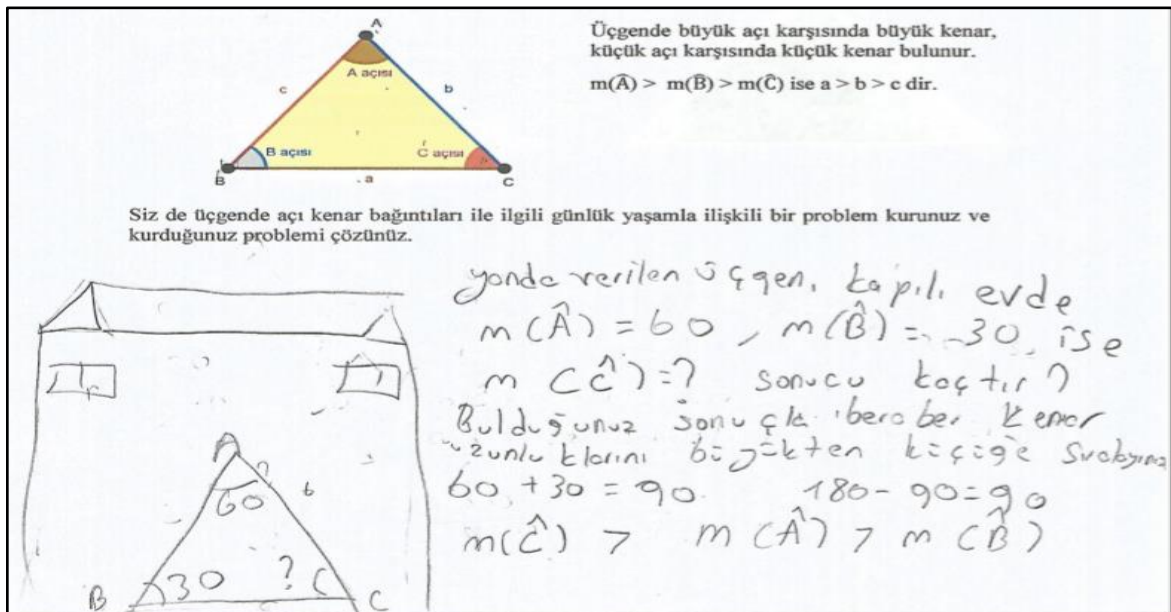 A
Üçgende büyük açı karşısında büyük kenar,
küçük açı karşısında küçük kenar bulunur.
m(Â) > m(B̂) > m(Ĉ) ise a > b > c dir.
A açısı
c
b
B açısı
C açısı
B
a
C
Siz de üçgende açı kenar bağıntıları ile ilgili günlük yaşamla ilişkili bir problem kurunuz ve
kurduğunuz problemi çözünüz.
yanda verilen üçgen, kapılı evde
m(Â) = 60, m(B̂) = 30, ise
m(Ĉ)=? sonucu kaçtır?
Bulduğunuz sonuçla beraber kenar
uzunluklarını büyükten küçüğe sıralayınız
60 + 30 = 90 180 - 90 = 90
m(Ĉ) > m(Â) > m(B̂)
A
60
b
B
30
?
C